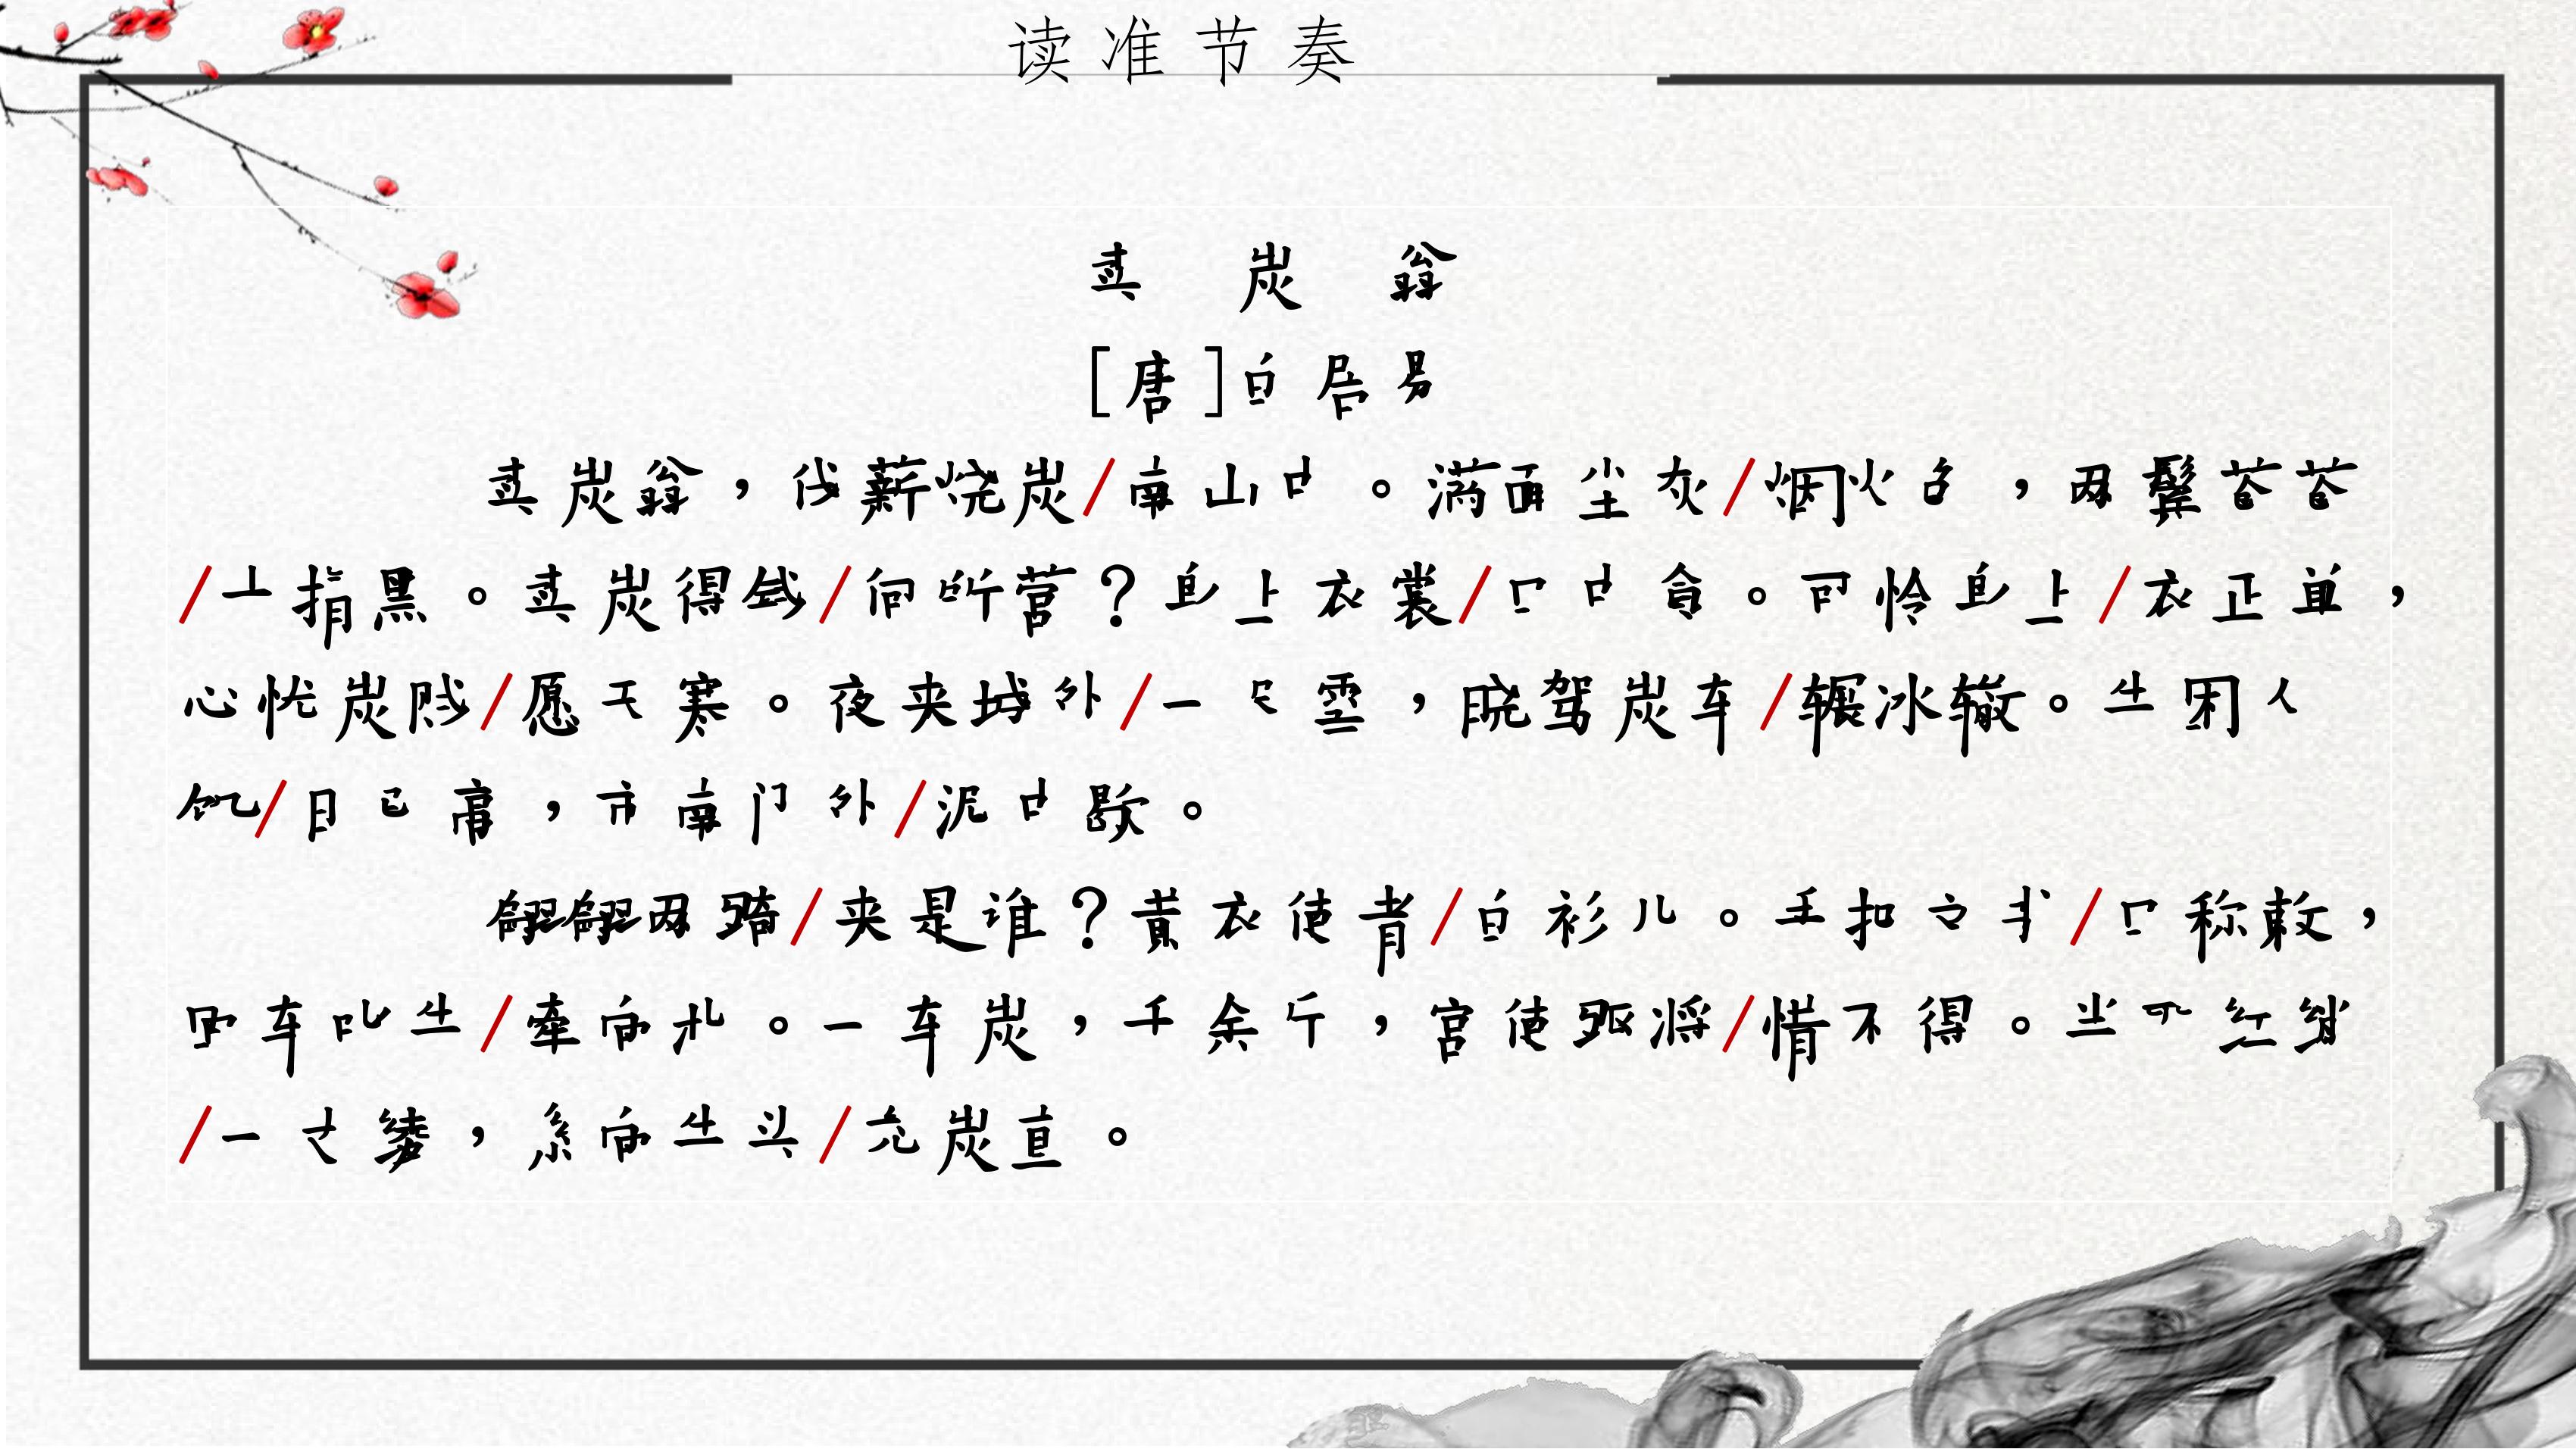 读准节奏
卖炭翁
[唐]白居易
卖炭翁，伐薪烧炭/南山中。满面尘灰/烟火色，两鬓苍苍
/十指黑。卖炭得钱/何所营？身上衣裳/口中食。可怜身上/衣正单，
心忧炭贱/愿天寒。夜来城外/一尺雪，晓驾炭车/辗冰辙。牛困人
饥/日已高，市南门外/泥中歇。
翩翩两骑/来是谁？黄衣使者/白衫儿。手把文书/口称敕，
回车叱牛/牵向北。一车炭，千余斤，宫使驱将/惜不得。半匹红绡
/一丈绫，系向牛头/充炭直。